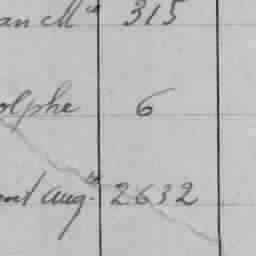 an Mie 315
olphe 6
ent Aug.te 2632